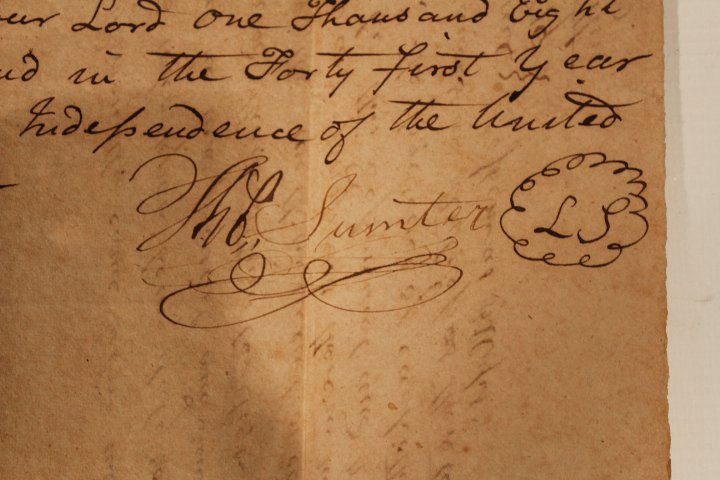 our Lord one Thousand Eight
and in the Forty first year
Independence of the United
Tho.s Sumter L S